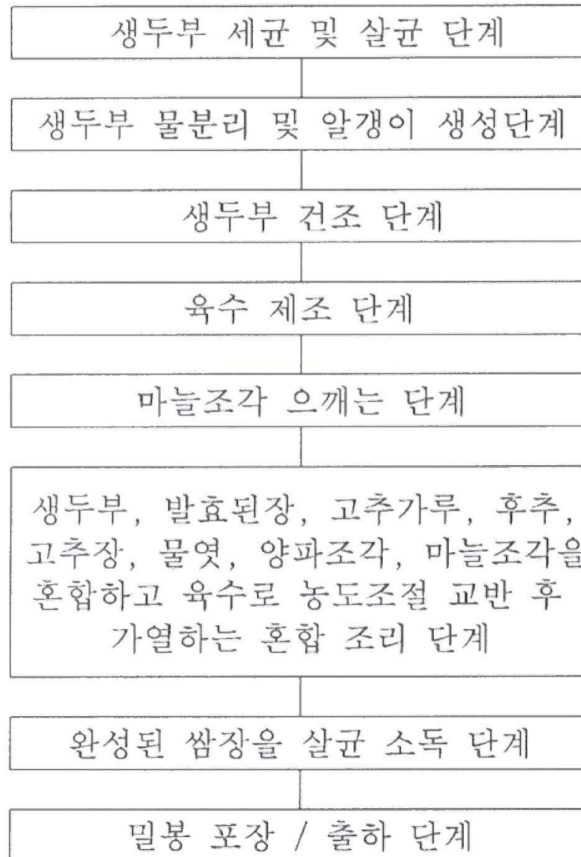 생두부 세균 및 살균 단계
생두부 물분리 및 알갱이 생성단계
생두부 건조 단계
육수 제조 단계
마늘조각 으깨는 단계
생두부, 발효된장, 고추가루, 후추,
고추장, 물엿, 양파조각, 마늘조각을
혼합하고 육수로 농도조절 교반 후
가열하는 혼합 조리 단계
완성된 쌈장을 살균 소독 단계
밀봉 포장 / 출하 단계